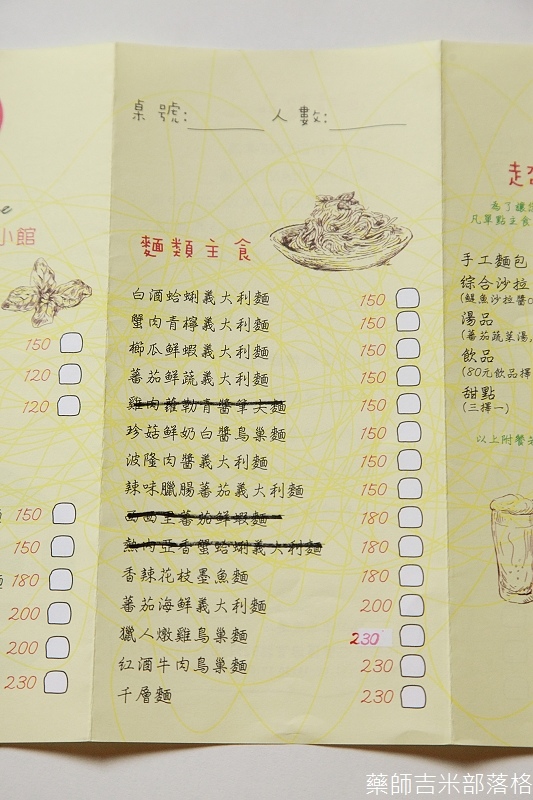 桌號:______ 人數:______
麵類主食
白酒蛤蜊義大利麵 150
蟹肉青檸義大利麵 150
櫛瓜鮮蝦義大利麵 150
蕃茄鮮蔬義大利麵 150
雞肉蘿勒青醬筆尖麵 150
珍菇鮮奶白醬鳥巢麵 150
波隆肉醬義大利麵 150
辣味臘腸蕃茄義大利麵 150
西西里蕃茄鮮蝦麵 180
180
香辣花枝墨魚麵 180
蕃茄海鮮義大利麵 200
獵人燉雞鳥巢麵 230
紅酒牛肉鳥巢麵 230
千層麵 230
小館
150
120
120
150
150
180
200
200
230
為了讓您
凡單點主食
手工麵包
綜合沙拉
(鯷魚沙拉醬o
湯品
(蕃茄蔬菜湯,
飲品
(80元飲品擇
甜點
(三擇一)
以上附餐
藥師吉米部落格